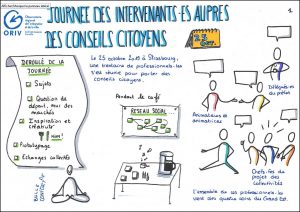 JOURNEE DES INTERVENANT·ES AUPRES
DES CONSEILS CITOYENS
1
ORIV
DEROULÉ DE LA
JOURNÉE
Sujets
Question de
départ, mur des
marchés
Inspiration et
créativité
Prototypage
Echanges collectifs
Le 25 octobre 2019 à Strasbourg,
une trentaine de professionnel·les
s'est réunie pour parler des
conseils citoyens.
Pendant le café
RESEAU SOCIAL...
Animateurs et
animatrices
Délégué·es du
préfet
Chef·fes de
projet des
collectivités
L'ensemble de ces professionnel·les
vient des quatre coins du Grand Est.